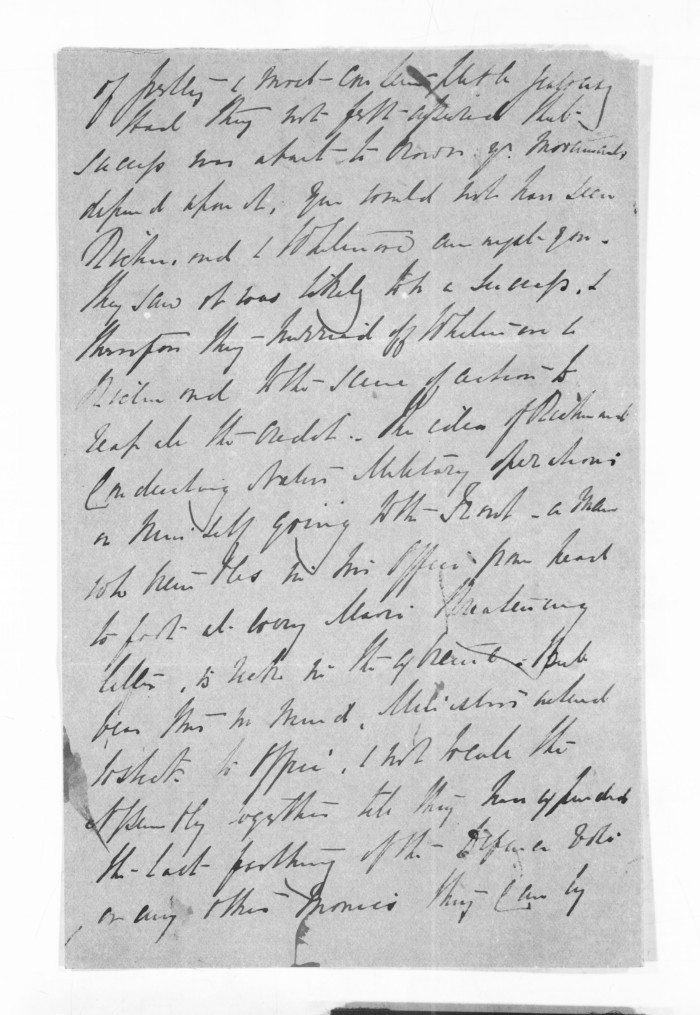 of petty & most contemptible jealousy
Had they not felt that
success was about to crown yr. movements
depend upon it, you would not have seen
Richmond & Whitmore
They saw it was likely to be a success, &
therefore they hurried off Whitmore &
Richmond to the scene of action to
reap all the credit. The idea of Richmond
Conducting Native Military operations
or himself going to the Front - a man
who trembles in his Office from head
to foot at every Maori threatening
letter, is in the extreme. But
bear this in mind, Ministers intend
to stick to Office, & not to call the
Assembly together till they have expended
the last farthing of the Defence
or any other monies they can by